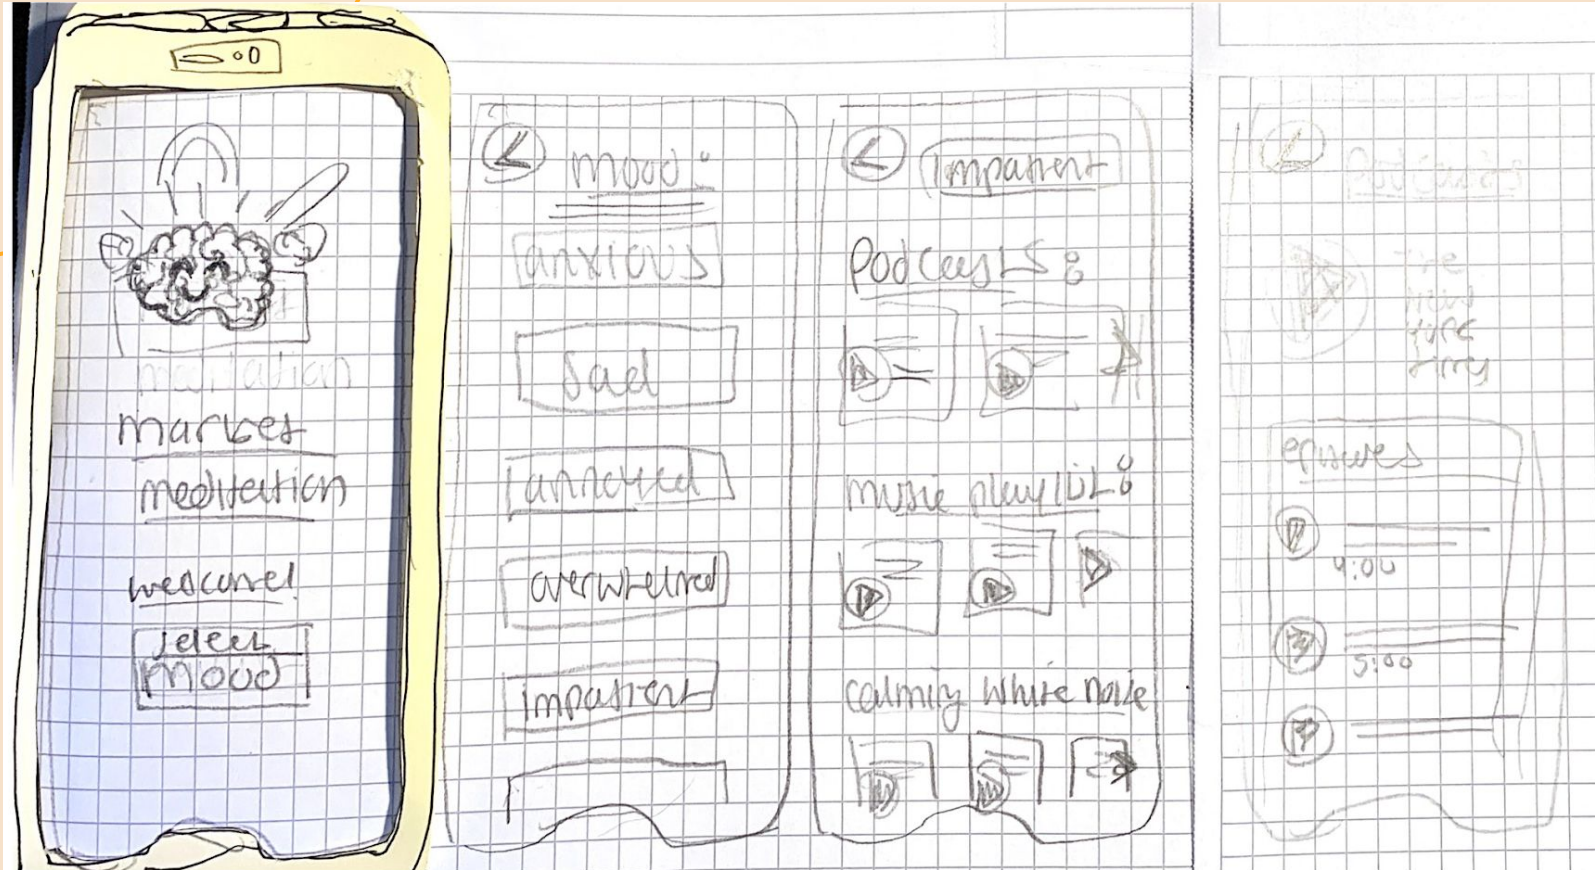 meditation
market
meditation
welcome!
select
mood
mood:
anxious
sad
annoyed
overwhelmed
impatient
impatient
Podcasts:
music playlist:
calming white noise
Podcasts
The
New
York
episodes
4:00
5:00